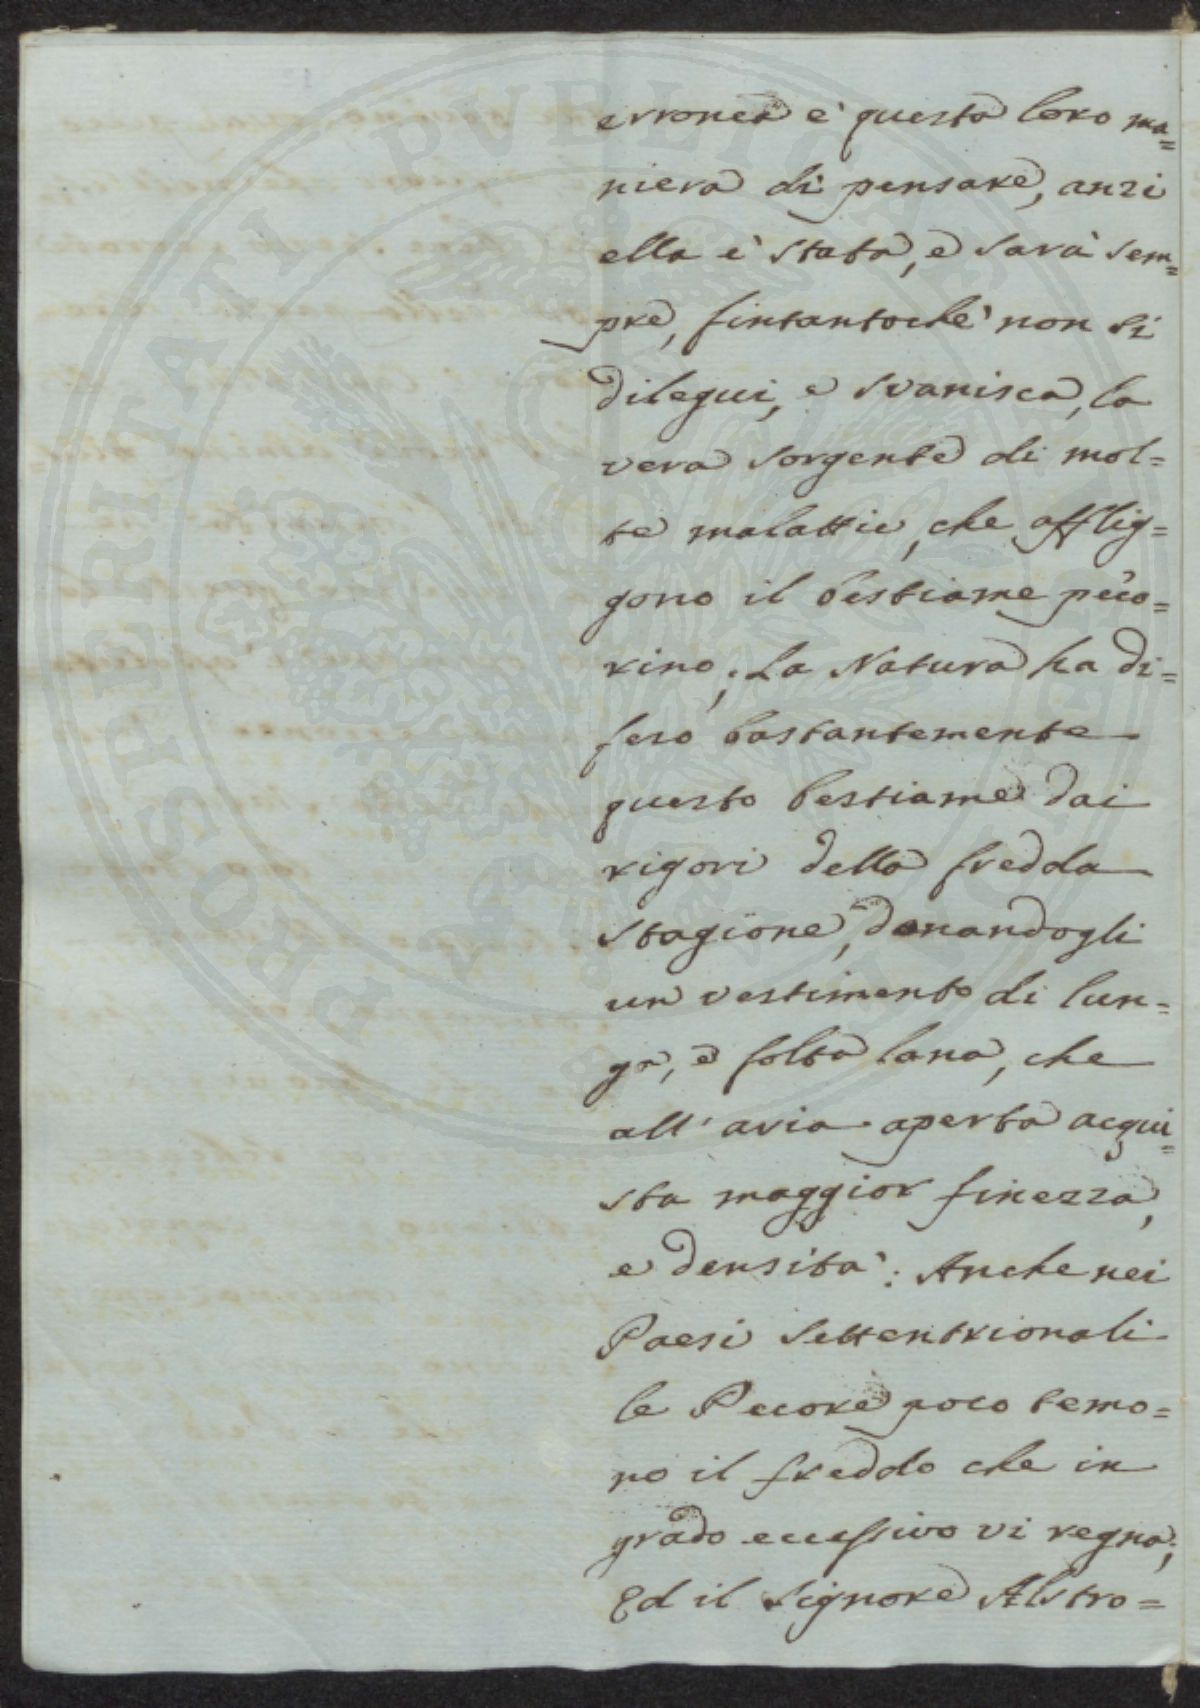 erronea è questa loro ma=
niera di pensare, anzi
ella è stata, e sarà sem=
pre, fintantochè non si
dilegui, e svanisca, la
vera sorgente di mol=
te malattie, che afflig=
gono il bestiame peco=
rino; La Natura ha di=
feso bastantemente
questo bestiame dai
rigori della fredda
stagione, donandogli
un vestimento di lun=
ga, e folta lana, che
all'aria aperta acqui=
sta maggior finezza,
e densità: Anche nei
Paesi settentrionali
le Pecore poco temo=
no il freddo che in
grado eccessivo vi regna;
Ed il Signore Alstro=
PROSPERITATI PVBLICAE